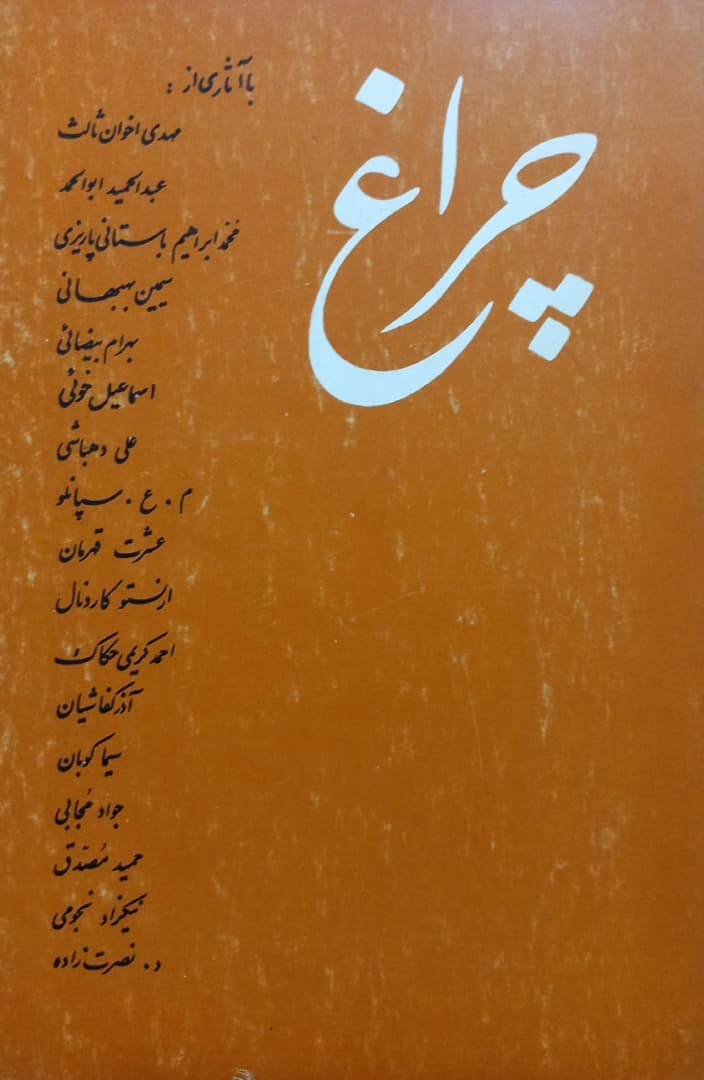 چراغ
با آثاری از :
مهدی اخوان ثالث
عبدالحمید ابوالحمد
محمد ابراهیم باستانی پاریزی
سیمین بهبهانی
بهرام بیضائی
اسماعیل خوئی
علی دهباشی
م . ع . سپانلو
عشرت قهرمان
ارنستو کاردنال
احمد کریمی حکاک
آذر کفاشیان
سیما کوبان
جواد مُجابی
حمید مُصدق
نیکزاد نجومی
د . نصرت زاده